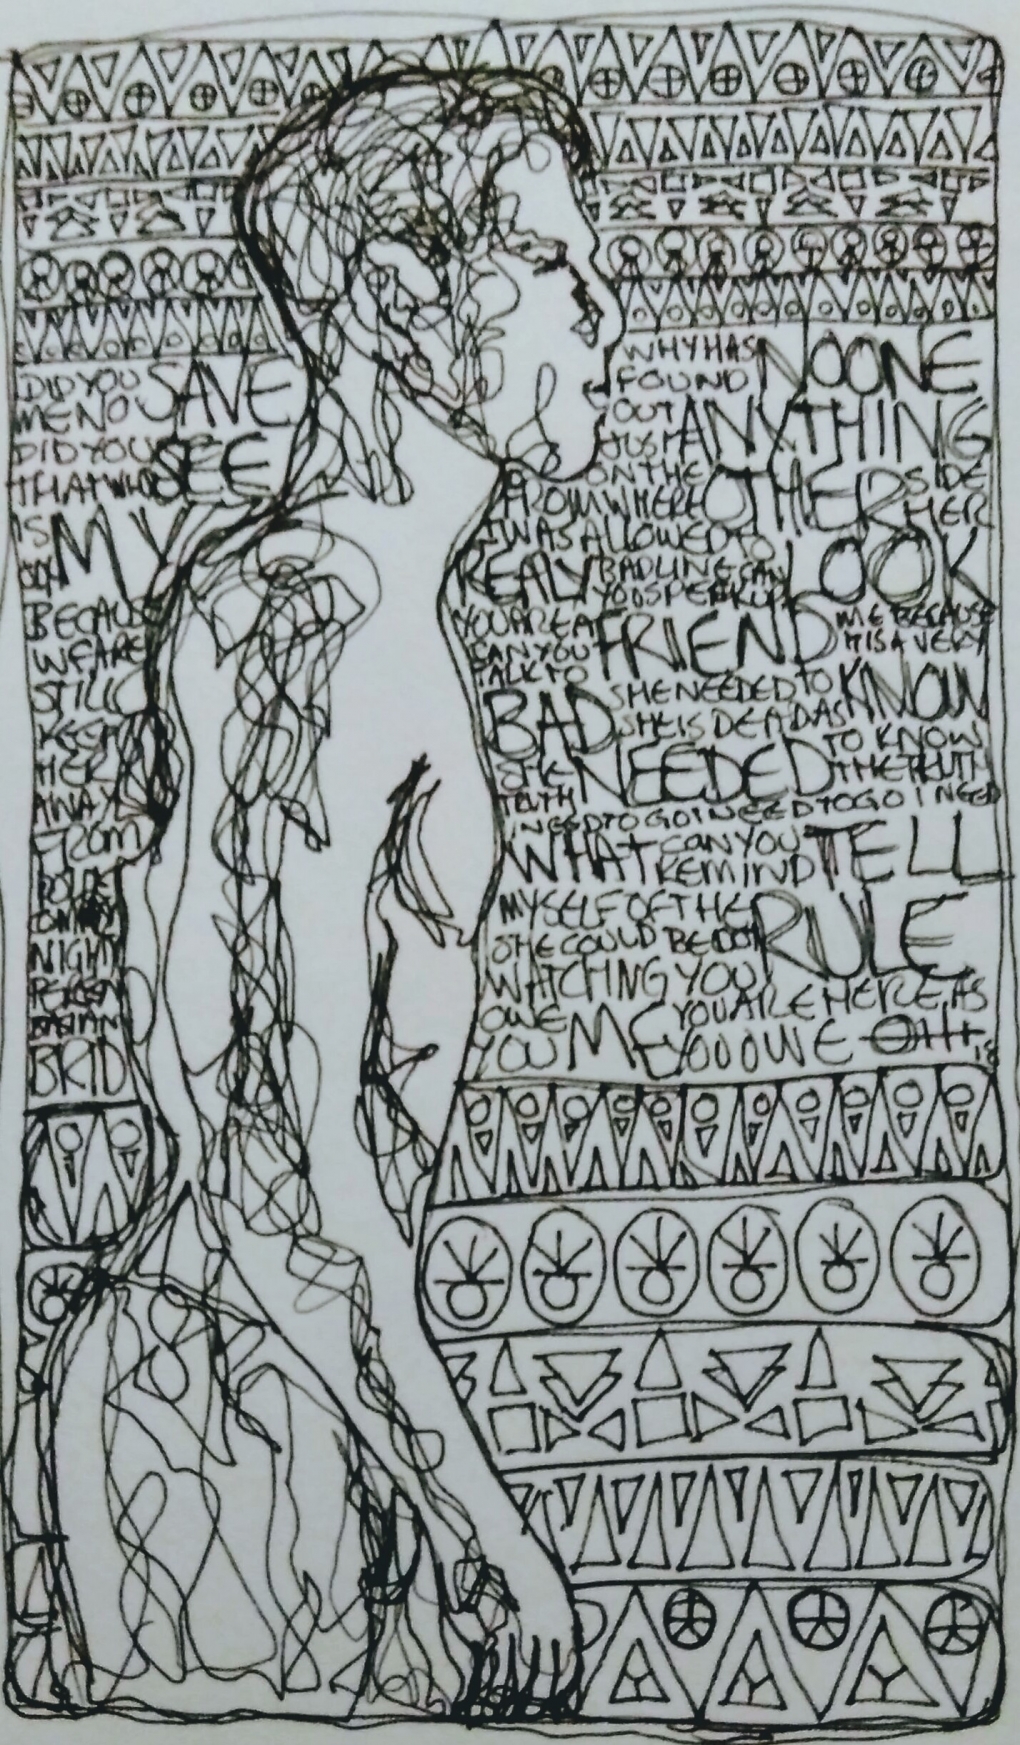 DID YOU SAVE
ME NO
DID YOU SEE
THAT WHO
IS MY
BECAUSE
WE ARE
STILL
KEEP
HER
AWAY
FROM
NIGHT
BRID
WHY HAS NOONE
FOUND
OUT ANYTHING
JUST
ON THE OTHER SIDE
FROM WHERE HER
I WAS ALLOWED TO LOOK
REALY BAD LINE CAN
YOU SPEEK UP
YOU ARE A FRIEND ME BECAUSE
CAN YOU IT IS A VERY
TALK TO
BAD SHE NEEDED TO KNOW
SHE IS DEAD AS
SHE NEEDED TO KNOW
TRUTH THE TRUTH
I NEED TO GO I NEED TO GO I NEED
WHAT CAN YOU TELL
REMIND
MYSELF OF THE RULE
SHE COULD BE
WATCHING YOU
OWE ME YOU ARE HERE AS
YOU YOU OWE